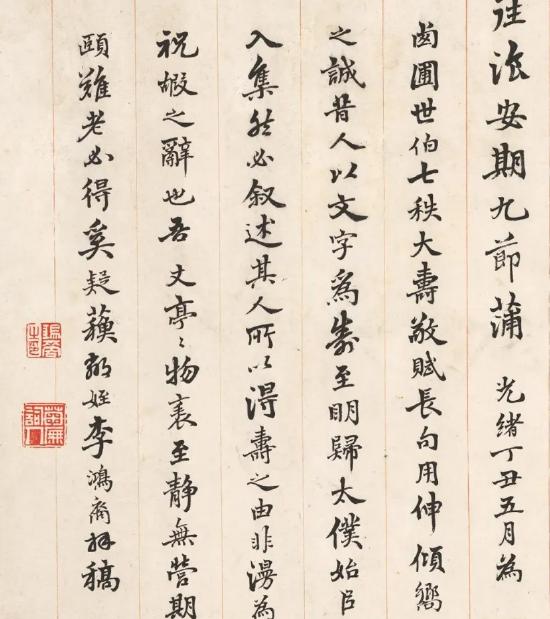 安期九節蒲 光緒丁丑五月為
卣圃世伯七秩大壽敬賦長句用伸傾嚮
之誠昔人以文字為壽至明歸太僕始㠯
入集然必叙述其人所以得壽之由非漫為
祝嘏之辭也吾 丈亭〻物表至靜無營期
頤難老必得奚疑蘓鄰姪李鴻裔拜稿